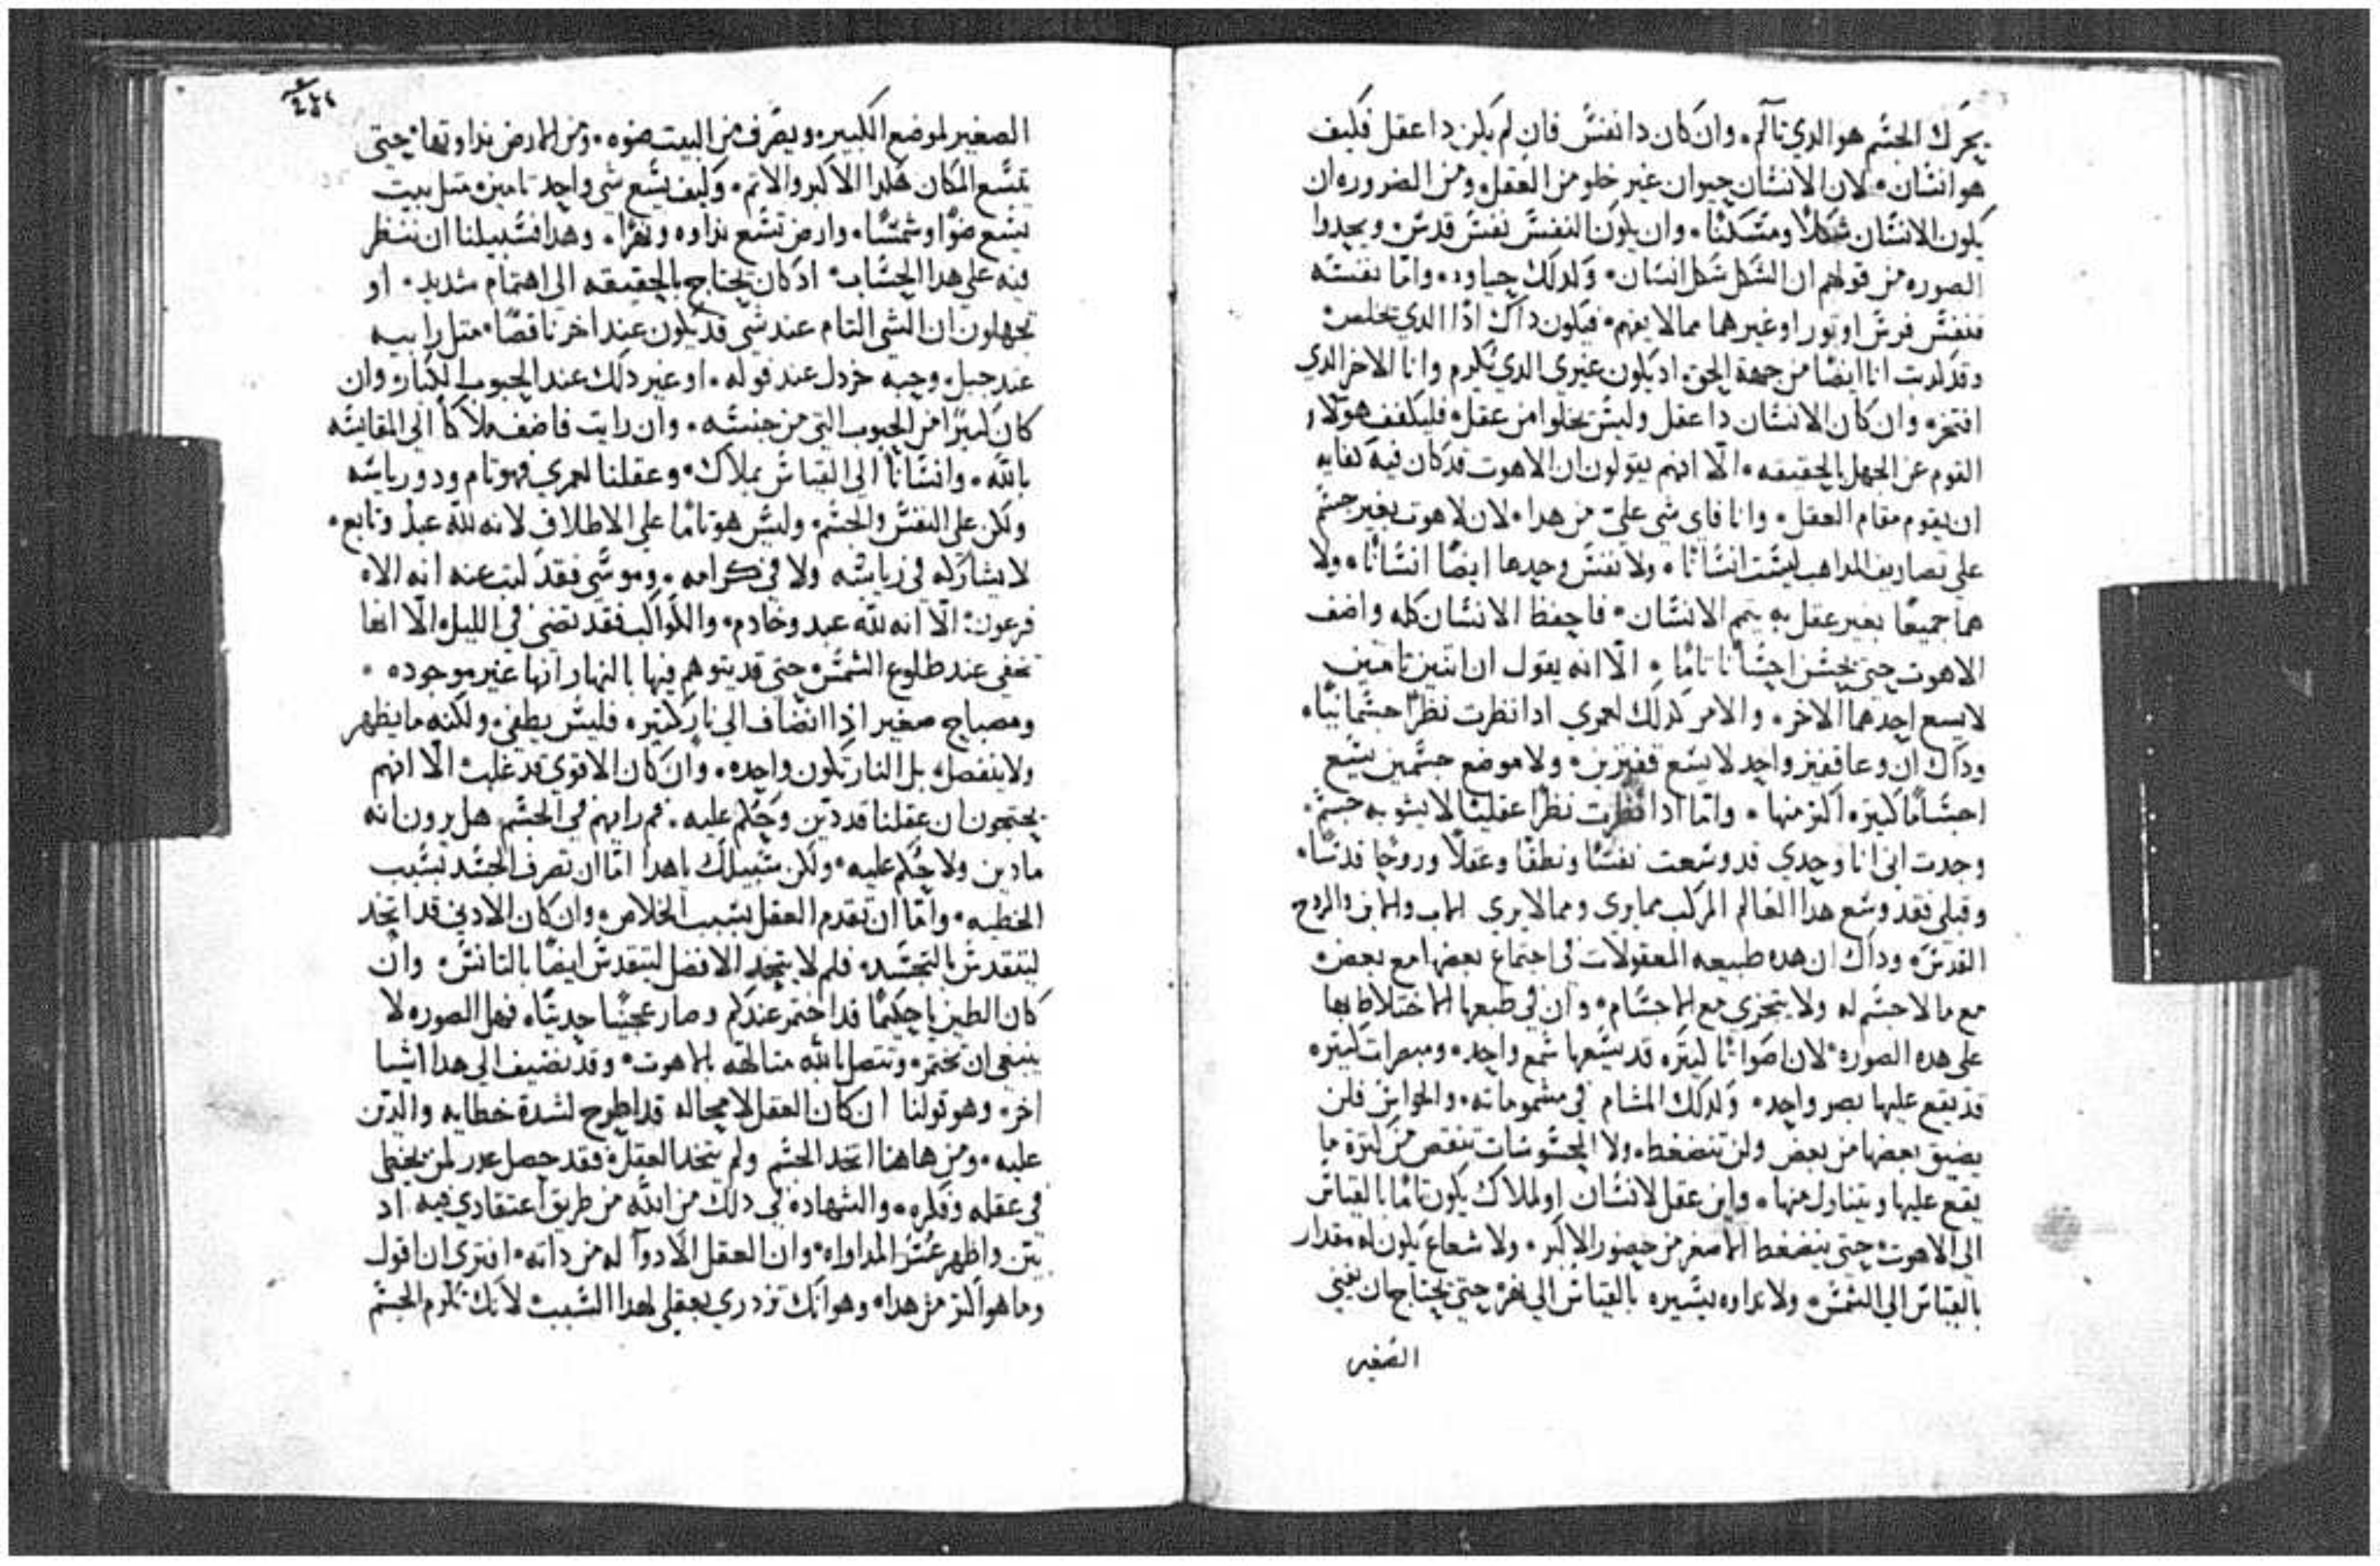 يحرك الجسم هو الدي تآلم. وان كان دا نفس فان لم يكن دا عقل فكيف
هو انسان. لان الانسان حيوان غير خلو من العقل. ومن الضروره ان
يكون الانسان شكلاً ومسكنًا. وان يكون النفس نفس قدس. ويجدوا
الصوره من قولهم ان الشكل شكل انسان. وكدلك حياوه. وامّا نفسه
فنفس فرس او تور او غيرهما مما لا يفهم. فيكون داك ادًا الدي تخلص
وقد كدبت انا ايضًا من جهة الحق. اد يكون غيري الدي تكرم وانا الاخر الدي
افتخر. وان كان الانسان دا عقل وليس يخلوا من عقل. فليكفف هولاء
القوم عن الجهل بالحقيقه. الّا انهم يقولون ان الاهوت قد كان فيه كفايه
ان يقوم مقام العقل. وانا فاي شي عليّ من هدا. لان لاهوت بغير جسم
علي تصاريف المداهب ليست انسانًا. ولا نفس وحدها ايضًا انسانًا. ولا
هما جميعًا بغير عقل به يتم الانسان. فاحفظ الانسان كله واضف
الاهوت حتي يحسن احسانًا تامًا. الّا انه يقول ان اتنين تامين
لا يسع احدهما الاخر. والامر كدلك لعمري ادا نظرت نظرًا جسمانيًا.
وداك ان وعا قفيز واحد لا يسع قفيزين. ولا موضع جسمين يسع
اجسامًا كتيره اكتر منها. وامّا ادا نظرت نظرًا عقليًا لا يشوبه جسم.
وجدت اني انا وحدي قد وسعت نفسًا ونطقًا وعقلاً وروحًا قدسًا.
وقبلي فقد وسع هدا العالم المركب مما يري ومما لا يري الاب والابن والروح
القدس. وداك ان هده طبيعه المعقولات في اجتماع بعضها مع بعض
مع ما لا جسم له ولا يتجزي مع الاجسام. وان في طبعها الاختلاط بها
علي هده الصوره. لان اصواتًا كتيره قد يسعها سمع واحد. ومبصرات كتيره
قد يقع عليها بصر واحد. وكدلك المشام في مشموماته. والحواس فلن
يضيق بعضها من بعض ولن تنضغط. ولا المحسوسات تنقص من كترة ما
يقع عليها ويتناول منها. واين عقل لانسان او لملاك يكون تامًا بالقياس
الي الاهوت. حتي ينضغط الاصغر من حضور الاكبر. ولا شعاع يكون له مقدار
بالقياس الي الشمس. ولا نداوه يسيره بالقياس الي نهر حتي يحتاج ان نفني
الصغير
الصغير لموضع الكبير. ويصرف من البيت ضوه. ومن الارض نداوتها. حتي
تسع المكان هكدا الاكبر والاتم. وكيف يسع شي واحد تامين. متل بيت
يسع ضوًا وشمسًا. وارض تسع نداوه ونهرًا. وهدا فسبيلنا ان ننظر
فيه علي هدا الحساب. اد كان يحتاج بالحقيقه الي اهتمام شديد. او
تجهلون ان الشي التام عند شي قد يكون عند اخر ناقصًا. متل رابيه
عند جبل. وحبه خردل عند فوله. او غير دلك عند الحبوب الكبار. وان
كان كبيرًا من الحبوب التي من جنسه. وان رايت فاضف ملاكًا الي المقايسه
بالله. وانسانًا الي القياس بملاك. وعقلنا لعمري فهو تام ودو رياسه
ولكن علي النفس والجسم. وليس هو تامًا علي الاطلاق لانه لله عبدٌ وتابع.
لا يشاركه في رياسه ولا في كرامه. وموسي فقد كتب عنه انه الاه
فرعون. الّا انه لله عبد وخادم. والكواكب فقد تضي في الليل. الّا انها
تخفي عند طلوع الشمس. حتي قد يتوهم فيها بالنهار انها غير موجوده.
ومصباح صغير ادا انضاف الي نار كتيره. فليس يطفي. ولكنه ما يظهر
ولا ينفصل. بل النار تكون واحده. وان كان الاقوي قد غلب. الّا انهم
يحتجون ان عقلنا قد دين وحُكم عليه. فم رايهم في الجسم هل يرون انه
ما دين ولا حُكم عليه. ولكن سبيلك يا هدا امّا ان تصرف الجسد بسبب
الخطيه. وامّا ان تقدم العقل بسبب الخلاص. وان كان الادني قد اتحد
ليتقدس بالتجسد. فلم لا يتحد الافضل ليتقدس ايضًا بالتانس. وان
كان الطين يا حكيمًا قد اختمر عندكم وصار عجينًا حديتًا. فهل الصوره لا
ينبغي ان تختمر. وتتصل بالله متالهه بالاهوت. وقد نضيف الي هدا اشيا
اخر. وهو قولنا ان كان العقل لا محاله قد اطرح لشدة خطايه والدين
عليه. ومن هاهنا اتحد الجسم ولم يتحد العقل. فقد حصل عدر لمن يخطي
في عقله وفكره. والشهاده في دلك من الله من طريق اعتقادي فيه اد
بيّن واظهر عُسر المداواه. وان العقل لا دوآ له من داته. افتري ان اقول
وما هو اكتر من هدا. وهو انك تزدري بعقلي لهدا السبب. لانك تكرم الجسم